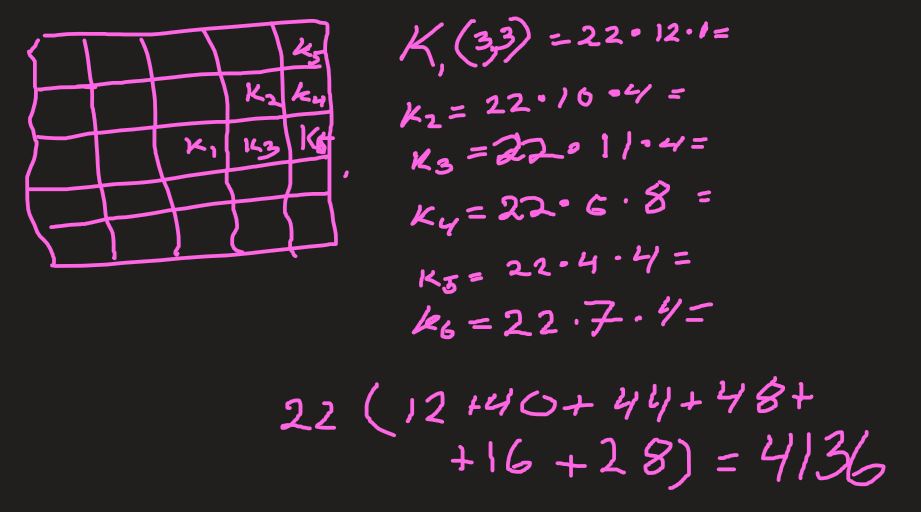 K₅
K₂ K₄
K₁ K₃ K₆
K₁(3,3) = 22·12·1=
K₂ = 22·10·4 =
K₃ = 22·11·4=
K₄ = 22·6·8 =
K₅ = 22·4·4=
K₆ = 22·7·4=
22 (12+40+44+48+
+16+28) = 4136